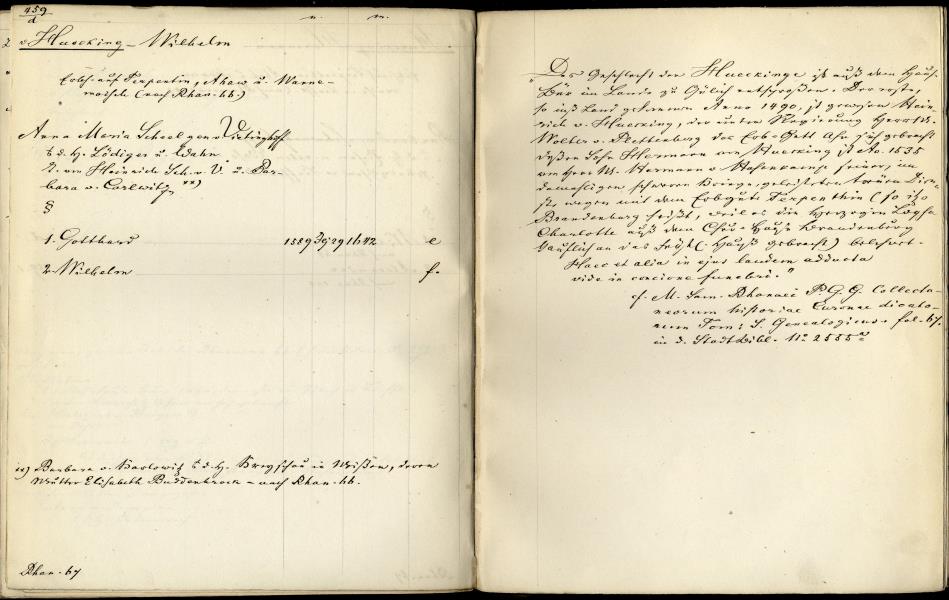 459
d
n. m.
v Huecking - Wilhelm
Erbh. auf Terpentin, Ahaw u. Warne-
(nach Rhan. hb.)
Anna Maria Scheel gen v Vietinghoff
t d. H. Lödiger u. Wahn
T. von Heinrich Sch. v. V. u. Bar-
bara v. Carlwitz xx)
§
1. Gotthard 1589 29 1642 e
2. Wilhelm f.
xx) Barbara v. Karlowitz t d. H. in Meißen, deren
Mutter Elisabeth Buddenbrock - nach Rhan. hb.
Rhan. 67
„Das Geschlecht der Hueckinge ist auß dem Hause
Bär im Lande zu Gülich entsproßen. Der erste,
so inß Land gekommen Anno 1490, ist gewesen Hein-
rich v. Huecking, der unter Regierung Herrn M.
Wolter v. Plettenberg das Erb-Gutt Ahf sich gebracht
deßen Sohn Hermann von Huecking ist Ao. 1535
von Herr M. Hermann v. Hasenkamp seiner im
damahligen schweren Kriege, geleisteten treuen Dien-
ste wegen mit dem Erbgute Terpenthin (so itzo
Brandenburg heißt, weil es die Hertzogin Loysa
Charlotte auß dem Chur-Hauß Brandenburg
käuflich an das Fürstl. Hauß gebracht) belehnet.
Haec et alia in ejus laudem adducta
vide in concione funebri."
cf. M. Sam. Rhanaei P. G. G. Collecta-
neorum historiae Curonae dicato-
rum Tom: I. Genealogicus. fol. 67.
in d. StadtBibl. No 2555